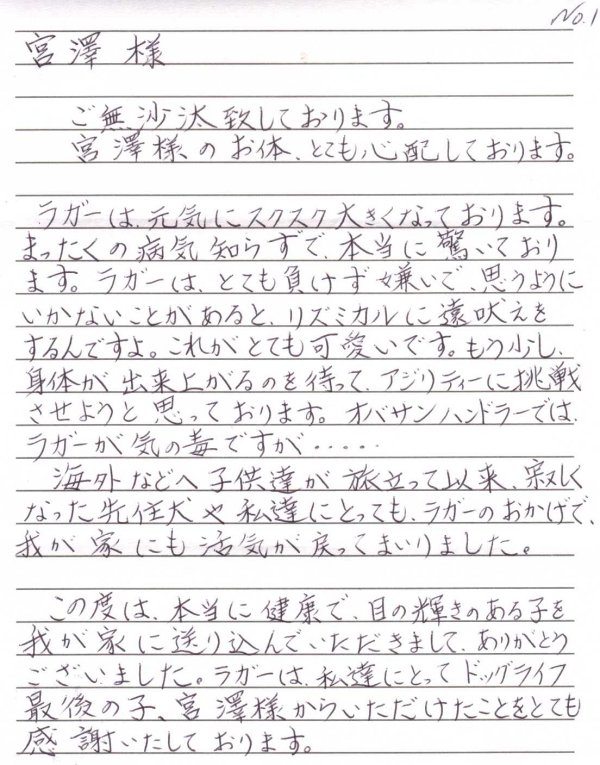 No.1
宮澤 様
ご無沙汰致しております。
宮澤様のお体、とても心配しております。
ラガーは、元気にスクスク大きくなっております。
まったくの病気知らずで、本当に驚いており
ます。ラガーは、とても負けず嫌いで、思うように
いかないことがあると、リズミカルに遠吠えを
するんですよ。これがとても可愛いです。もう少し、
身体が出来上がるのを待って、アジリティーに挑戦
させようと思っております。オバサンハンドラーでは、
ラガーが気の毒ですが・・・・・
海外などへ子供達が旅立って以来、寂しく
なった先住犬や私達にとっても、ラガーのおかげで、
我が家にも活気が戻ってまいりました。
この度は、本当に健康で、目の輝きのある子を
我が家に送り込んでいただきまして、ありがとう
ございました。ラガーは、私達にとってドッグライフ
最後の子、宮澤様からいただけたことをとても
感謝いたしております。